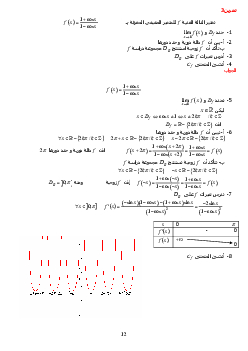 تمرين3
نعتبر الدالة العددية f للمتغير الحقيقي المعرفة بـ f(x) = (1+cos x)/(1−cos x)
1- حدد D_f و lim f(x)
2- أ- بين أن f دالة دورية وحدد دورها
ب- تأكد أن f زوجية استنتج D_E مجموعة دراسة f
3- أدرس تغيرات f على D_E
4- أنشئ المنحنى C_f
الجواب
f(x) = (1+cos x)/(1−cos x)
5- نحدد D_f و lim f(x)
لتكن x∈ℝ
x∈D_f ⇔ cos x ≠1 ⇔ x≠2kπ /k∈ℤ
اذن D_f = ℝ−{2kπ /k∈ℤ}
6- أ- نبين أن f دالة دورية وحدد دورها
∀x∈ℝ−{2kπ /k∈ℤ} 2π+x∈ℝ−{2kπ /k∈ℤ}
f(x+2π) = (1+cos(x+2π))/(1−cos(x+2π)) = (1+cos x)/(1−cos x) = f(x) اذن f دالة دورية وحدد دورها 2π
ب- نتأكد أن f زوجية نستنتج D_E مجموعة دراسة f
∀x∈ℝ−{2kπ /k∈ℤ} −x∈ℝ−{2kπ /k∈ℤ}
f(−x) = (1+cos(−x))/(1−cos(−x)) = (1+cos x)/(1−cos x) = f(x) اذن f زوجية ومنه D_E = ]0;π]
7- ندرس تغيرات f على D_E
∀x∈]0;π] f'(x) = ((−sin x)(1−cos x)−(1+cos x)sin x)/(1−cos x)² = −2sin x/(1−cos x)²
x 0 π
f'(x) − 0
f(x) +∞ 0
8- أنشئ المنحنى C_f
12